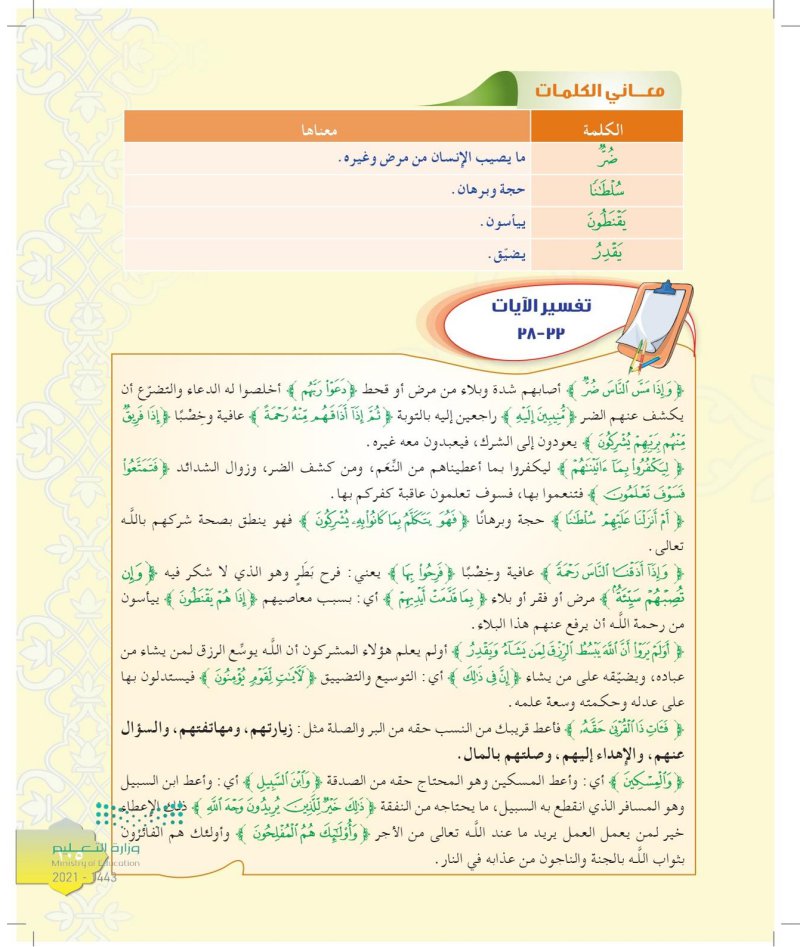 معــاني الكلمــات
الكلمة معناها
ضُرٌّ ما يصيب الإنسان من مرض وغيره.
سُلْطَٰنًا حجة وبرهان.
يَقْنَطُونَ ييأسون.
يَقْدِرُ يضيّق.
تفسير الآيات
٢٢-٢٨
﴿وَإِذَا مَسَّ ٱلنَّاسَ ضُرٌّ﴾ أصابهم شدة وبلاء من مرض أو قحط ﴿دَعَوْا۟ رَبَّهُم﴾ أخلصوا له الدعاء والتضرّع أن
يكشف عنهم الضر ﴿مُّنِيبِينَ إِلَيْهِ﴾ راجعين إليه بالتوبة ﴿ثُمَّ إِذَآ أَذَاقَهُم مِّنْهُ رَحْمَةً﴾ عافية وخصْبًا ﴿إِذَا فَرِيقٌ
مِّنْهُم بِرَبِّهِمْ يُشْرِكُونَ﴾ يعودون إلى الشرك، فيعبدون معه غيره.
﴿لِيَكْفُرُوا۟ بِمَآ ءَاتَيْنَٰهُمْ﴾ ليكفروا بما أعطيناهم من النِّعَم، ومن كشف الضر، وزوال الشدائد ﴿فَتَمَتَّعُوا۟
فَسَوْفَ تَعْلَمُونَ﴾ فتنعموا بها، فسوف تعلمون عاقبة كفركم بها.
﴿أَمْ أَنزَلْنَا عَلَيْهِمْ سُلْطَٰنًا﴾ حجة وبرهانًا ﴿فَهُوَ يَتَكَلَّمُ بِمَا كَانُوا۟ بِهِۦ يُشْرِكُونَ﴾ فهو ينطق بصحة شركهم باللَّه
تعالى.
﴿وَإِذَآ أَذَقْنَا ٱلنَّاسَ رَحْمَةً﴾ عافية وخصْبًا ﴿فَرِحُوا۟ بِهَا﴾ يعني: فرح بَطَرٍ وهو الذي لا شكر فيه ﴿وَإِن
تُصِبْهُمْ سَيِّئَةٌۢ﴾ مرض أو فقر أو بلاء ﴿بِمَا قَدَّمَتْ أَيْدِيهِمْ﴾ أي: بسبب معاصيهم ﴿إِذَا هُمْ يَقْنَطُونَ﴾ ييأسون
من رحمة اللَّه أن يرفع عنهم هذا البلاء.
﴿أَوَلَمْ يَرَوْا۟ أَنَّ ٱللَّهَ يَبْسُطُ ٱلرِّزْقَ لِمَن يَشَآءُ وَيَقْدِرُ﴾ أولم يعلم هؤلاء المشركون أن اللَّه يوسِّع الرزق لمن يشاء من
عباده، ويضيّقه على من يشاء ﴿إِنَّ فِى ذَٰلِكَ﴾ أي: التوسيع والتضييق ﴿لَءَايَٰتٍ لِّقَوْمٍ يُؤْمِنُونَ﴾ فيستدلون بها
على عدله وحكمته وسعة علمه.
﴿فَـَٔاتِ ذَا ٱلْقُرْبَىٰ حَقَّهُۥ﴾ فأعط قريبك من النسب حقه من البر والصلة مثل: زيارتهم، ومهاتفتهم، والسؤال
عنهم، والإهداء إليهم، وصلتهم بالمال.
﴿وَٱلْمِسْكِينَ﴾ أي: وأعط المسكين وهو المحتاج حقه من الصدقة ﴿وَٱبْنَ ٱلسَّبِيلِ﴾ أي: وأعط ابن السبيل
وهو المسافر الذي انقطع به السبيل، ما يحتاجه من النفقة ﴿ذَٰلِكَ خَيْرٌ لِّلَّذِينَ يُرِيدُونَ وَجْهَ ٱللَّهِ﴾ ذلك الإعطاء
خير لمن يعمل العمل يريد ما عند اللَّه تعالى من الأجر ﴿وَأُو۟لَٰٓئِكَ هُمُ ٱلْمُفْلِحُونَ﴾ وأولئك هم الفائزون
بثواب اللَّه بالجنة والناجون من عذابه في النار.
وزارة التعـــليم
Ministry of Education
2021 - 1443